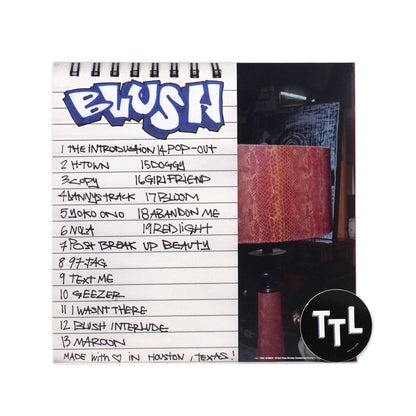 BLUSH
1 THE INTRODUCTION 14 POP-OUT
2 H-TOWN 15 DOGGY
3 COPY 16 GIRLFRIEND
4 LANNYS TRACK 17 BLOOM
5 YOKO ONO 18 ABANDON ME
6 NOLA 19 REDLIGHT
7 POSH BREAK UP BEAUTY
8 97-TAG
9 TEXT ME
10 GEEZER
11 I WASN'T THERE
12 BLUSH INTERLUDE
13 MAROON
MADE with ♡ IN HOUSTON, TEXAS!
TTL